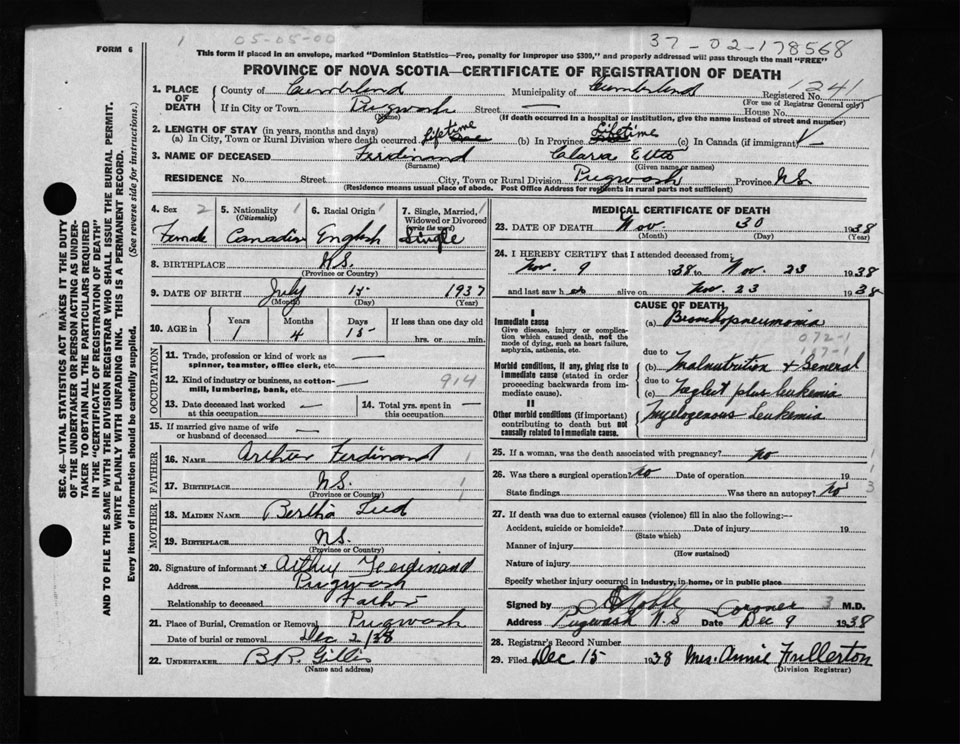 FORM 6
1 05-05-00
37-02-178568
This form if placed in an envelope, marked "Dominion Statistics—Free, penalty for improper use $300," and properly addressed will pass through the mail "FREE"
PROVINCE OF NOVA SCOTIA—CERTIFICATE OF REGISTRATION OF DEATH
1. PLACE OF DEATH County of Cumberland Municipality of Cumberland Registered No. 1241
(For use of Registrar General only)
If in City or Town Pugwash Street — House No.
(Name) (If death occurred in a hospital or institution, give the name instead of street and number)
2. LENGTH OF STAY (in years, months and days)
(a) In City, Town or Rural Division where death occurred lifetime (b) In Province Lifetime (c) In Canada (if immigrant) —
3. NAME OF DECEASED Ferdinand Clara Etta
(Surname) (Given name or names)
RESIDENCE No. Street City, Town or Rural Division Pugwash Province N.S.
(Residence means usual place of abode. Post Office Address for residents in rural parts not sufficient)
4. Sex 2 Female
5. Nationality 1 (Citizenship) Canadian
6. Racial Origin 1 English
7. Single, Married, 1 Widowed or Divorced (write the word) Single
8. BIRTHPLACE N.S.
(Province or Country)
9. DATE OF BIRTH July 15 1937
(Month) (Day) (Year)
10. AGE in Years Months Days If less than one day old
1 4 15 hrs. or min.
OCCUPATION
11. Trade, profession or kind of work as spinner, teamster, office clerk, etc. —
12. Kind of industry or business, as cotton-mill, lumbering, bank, etc. — 914
13. Date deceased last worked at this occupation —
14. Total yrs. spent in this occupation —
15. If married give name of wife or husband of deceased —
FATHER
16. NAME Arthur Ferdinand 1
17. BIRTHPLACE N.S. 1
(Province or Country)
MOTHER
18. MAIDEN NAME Bertha
19. BIRTHPLACE N.S.
(Province or Country)
20. Signature of informant x Arthur Ferdinand
Address Pugwash
Relationship to deceased Father
21. Place of Burial, Cremation or Removal Pugwash
Date of burial or removal Dec 2/38
22. UNDERTAKER B.R. Gillis
(Name and address)
MEDICAL CERTIFICATE OF DEATH
23. DATE OF DEATH Nov. 30 1938
(Month) (Day) (Year)
24. I HEREBY CERTIFY that I attended deceased from:
Nov. 9 1938 to Nov. 23 1938
and last saw h er alive on Nov. 23 1938
CAUSE OF DEATH
I
Immediate cause (a) Bronchopneumonia
Give disease, injury or complication which caused death, not the mode of dying, such as heart failure, asphyxia, asthenia, etc.
072-1
due to
Morbid conditions, if any, giving rise to immediate cause (stated in order proceeding backwards from immediate cause).
(b) Malnutrition & General
due to
(c) Neglect plus leukemia
II
Other morbid conditions (if important) contributing to death but not causally related to immediate cause.
Myelogenous Leukemia
25. If a woman, was the death associated with pregnancy? no 1
26. Was there a surgical operation? no Date of operation 19 1
State findings Was there an autopsy? no 3
27. If death was due to external causes (violence) fill in also the following:—
Accident, suicide or homicide? Date of injury 19
(State which)
Manner of injury
(How sustained)
Nature of injury
Specify whether injury occurred in industry, in home, or in public place
Signed by Coroner 3 M.D.
Address Pugwash N.S Date Dec 9 1938
28. Registrar's Record Number
29. Filed Dec 15 1938 Mrs. Annie Fullerton
(Division Registrar)
SEC. 46—VITAL STATISTICS ACT MAKES IT THE DUTY
OF THE UNDERTAKER OR PERSON ACTING AS UNDER-
TAKER TO OBTAIN ALL THE PARTICULARS REQUIRED
IN THE "CERTIFICATE OF REGISTRATION OF DEATH"
AND TO FILE THE SAME WITH THE DIVISION REGISTRAR WHO SHALL ISSUE THE BURIAL PERMIT.
WRITE PLAINLY WITH UNFADING INK. THIS IS A PERMANENT RECORD.
Every item of information should be carefully supplied. (See reverse side for instructions.)